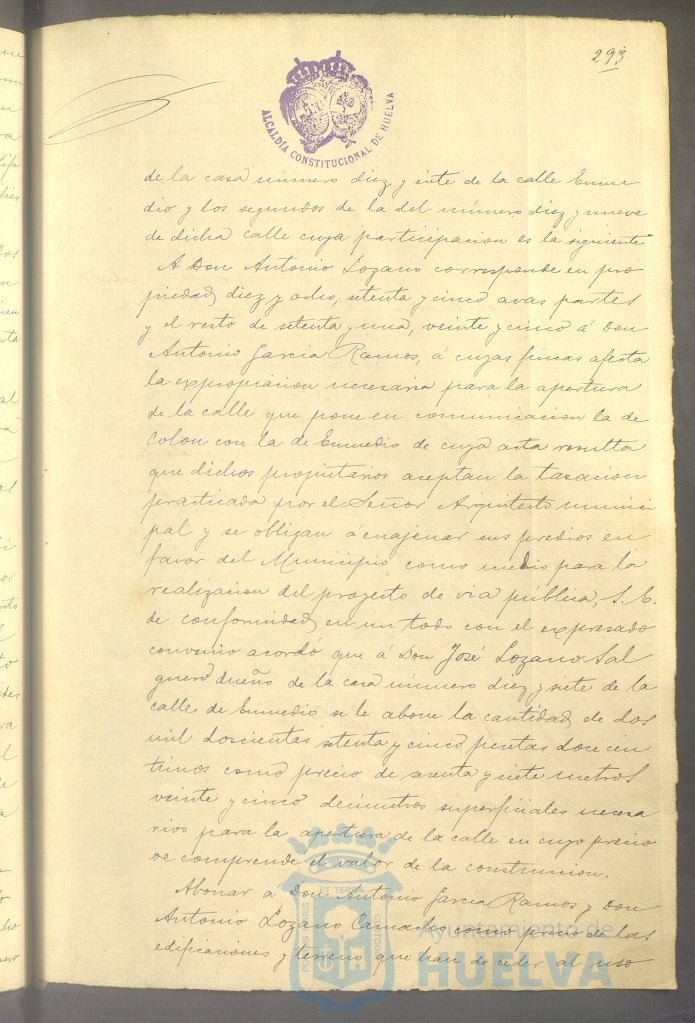 293
ALCALDÍA CONSTITUCIONAL DE HUELVA
de la casa número diez y siete de la calle Enme
dio y los segundos de la del número diez y nueve
de dicha calle cuya participacion es la siguiente
A Don Antonio Lozano corresponde en pro
piedad diez y ocho, setenta y cinco avas partes
y el resto de setenta y una, veinte y cinco á Don
Antonio Garcia Ramos, á cuyas fincas afecta
la expropiacion necesaria para la apertura
de la calle que pone en comunicacion la de
Colon con la de Enmedio de cuya acta resulta
que dichos propietarios aceptan la tasacion
practicada por el Señor Arquitecto munici
pal y se obligan á enajenar sus predios en
favor del Municipio como medio para la
realizacion del proyecto de via pública, S. E.
de conformidad en un todo con el expresado
convenio acordó que á Don José Lozano Sal
guero dueño de la casa número diez y siete de la
calle de Enmedio se le abone la cantidad de dos
mil doscientas setenta y cinco pesetas doce cen
timos como precio de sesenta y siete metros
veinte y cinco decimetros superficiales necesa
rios para la apertura de la calle en cuyo precio
se comprende el valor de la construccion.
Abonar á Don Antonio Garcia Ramos y Don
Antonio Lozano como precio de las
edificaciones y terreno que han de ceder al uso
PORTUS MARIS ET TERRE CUSTODIA
Ayuntamiento de
HUELVA